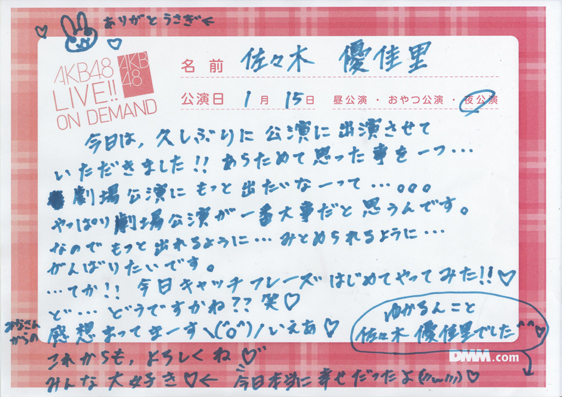 ありがとうさぎ←
AKB48
LIVE!!
ON DEMAND
AKB
48
名前 佐々木 優佳里
公演日 1月 15日 昼公演・おやつ公演・夜公演
今日は、久しぶりに公演に出演させて
いただきました!! あらためて思った事を一つ…
劇場公演にもっと出たいなーって…。。。
やっぱり劇場公演が一番大事だと思うんです。
なのでもっと出れるように…みとめられるように…
がんばりたいです。
…てか!! 今日キャッチフレーズはじめてやってみた!!♡
ど…どうですかね?? 笑♡
みなさんからの
感想まってまーす\(^o^)/いえあ♡
ゆかるんこと
佐々木 優佳里でした^^♡
DMM.com
これからも、よろしくね♡
みんな大好き♡← 今日本当に幸せだったよ(//ω//)♡